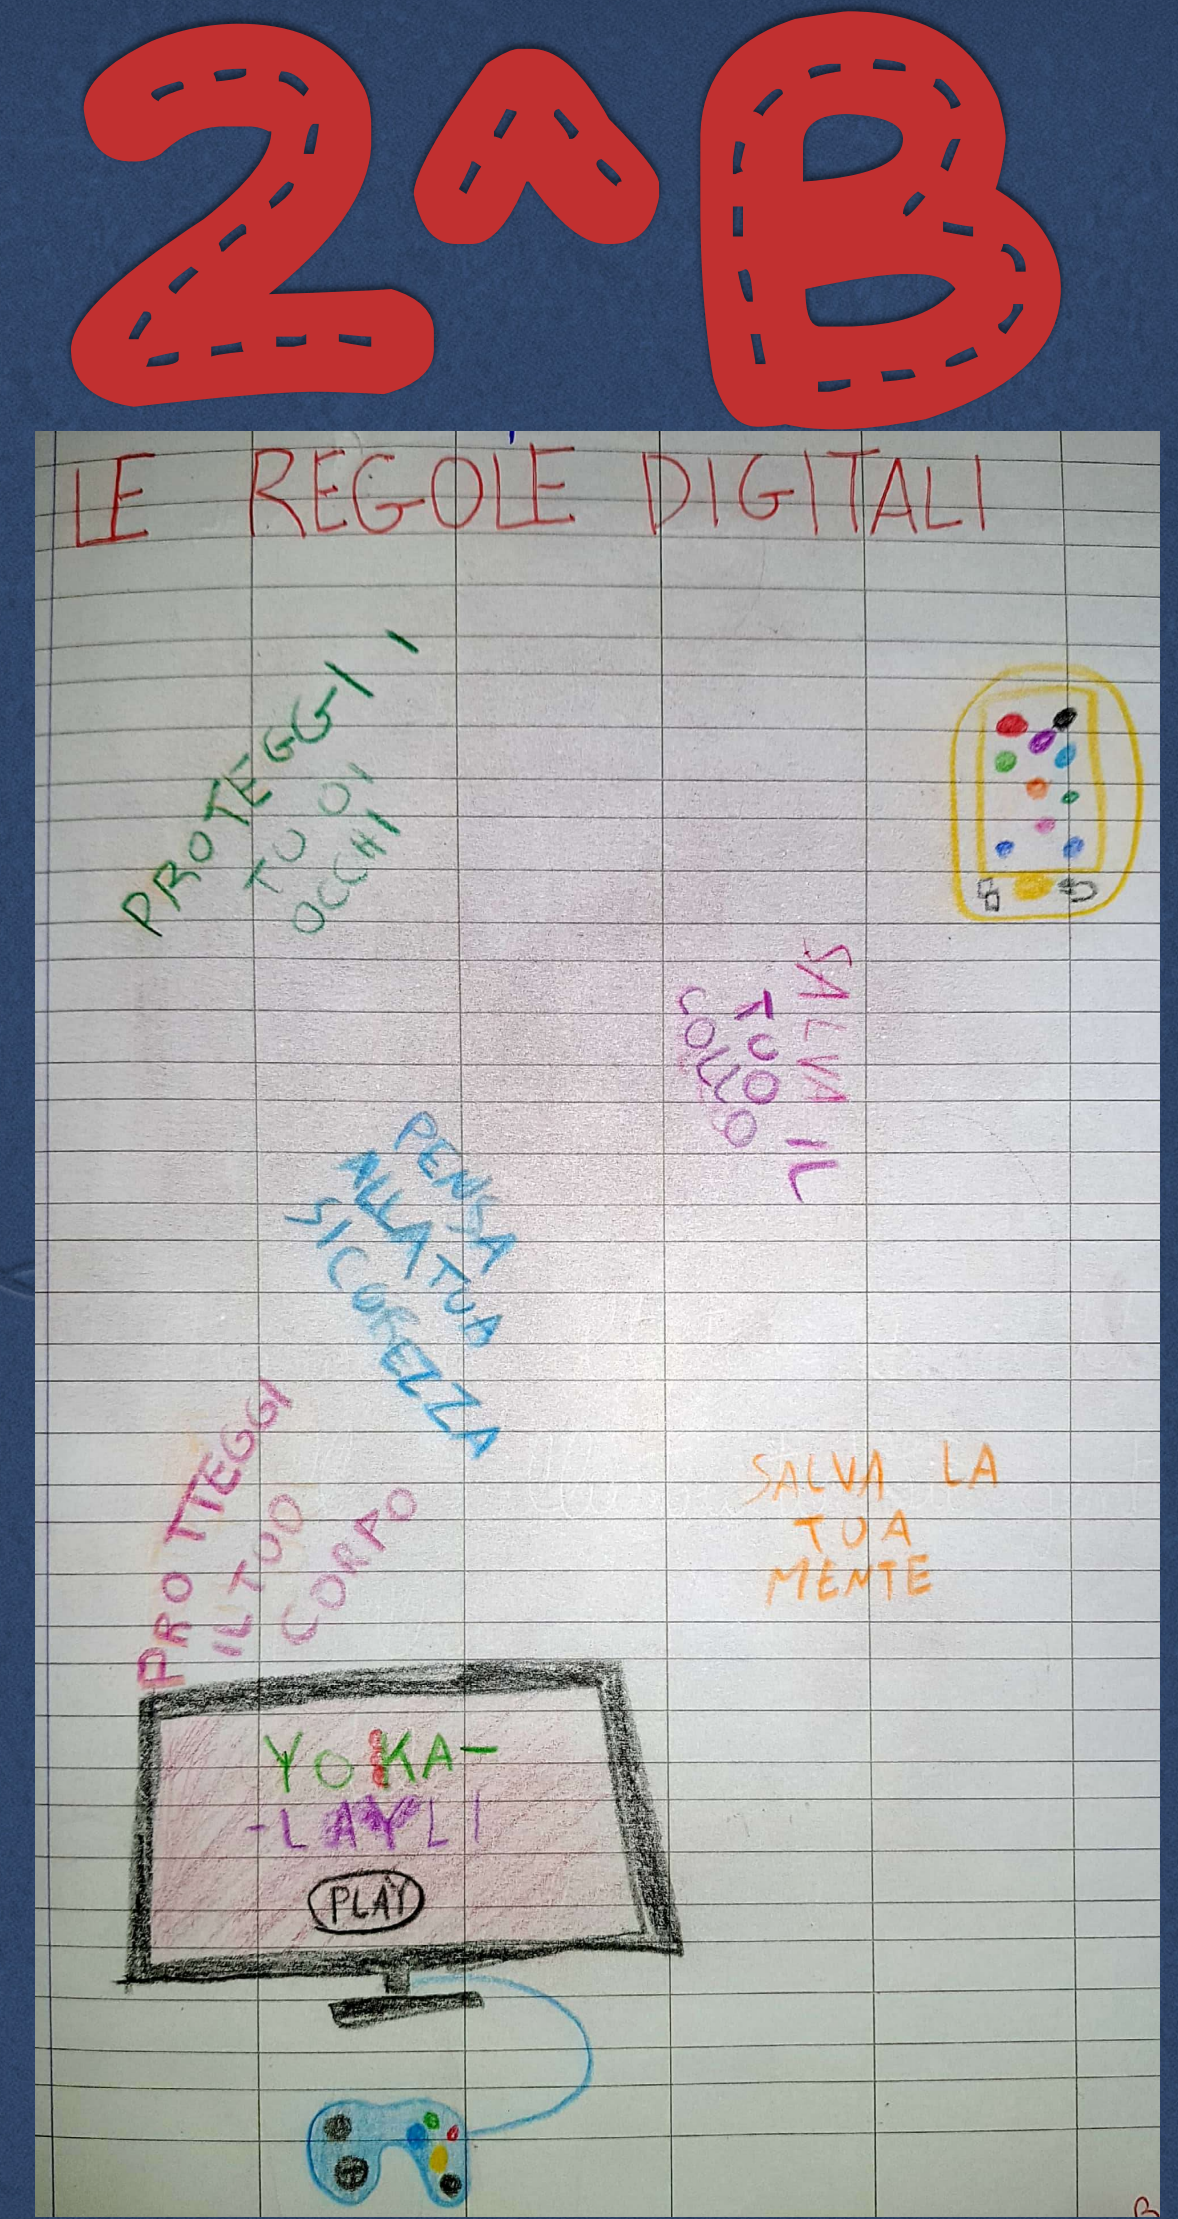 2^B
LE REGOLE DIGITALI
PROTEGGI I
TUOI
OCCHI
SALVA IL
TUO
COLLO
PENSA
ALLA TUA
SICUREZZA
PROTTEGGI
IL TUO
CORPO
SALVA LA
TUA
MENTE
YOKA-
-LAYLI
PLAY